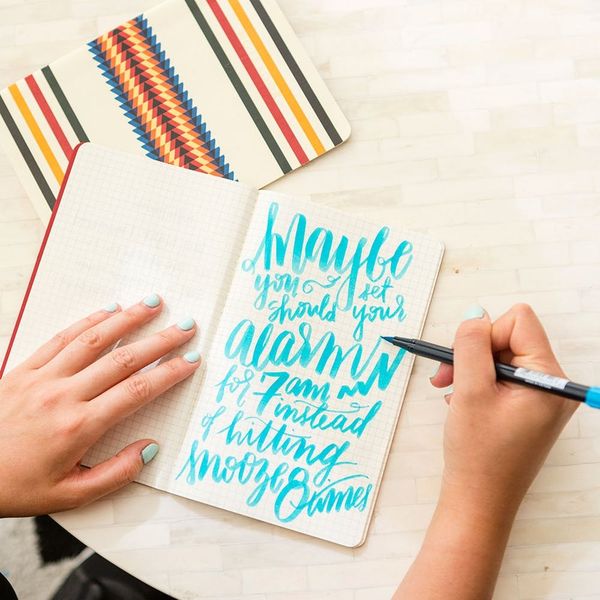 Maybe
you set
should your
alarm
for 7am
instead
of hitting
snooze 8 times